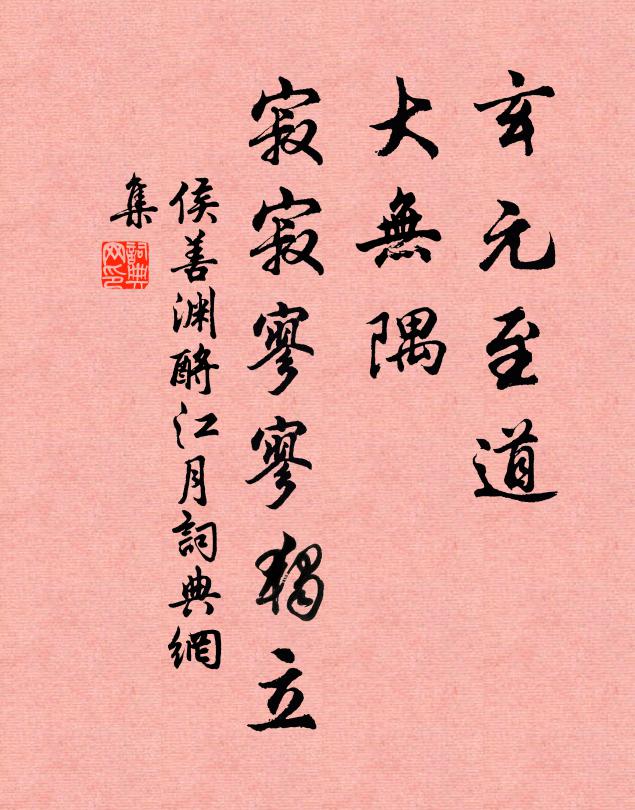 玄元至道
大無隅
寂寂寥寥獨立
侯善渊酹江月詞典網
集
詞典
网印